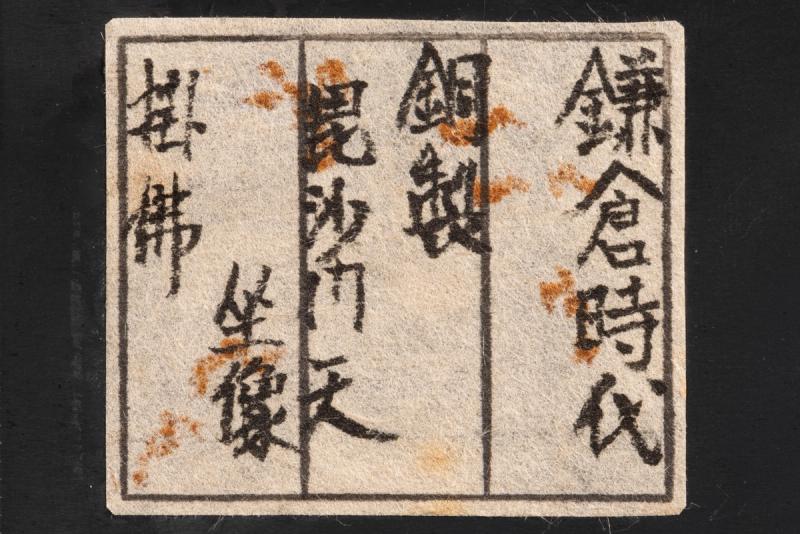 鎌倉時代
銅製
毘沙门天
坐像
掛佛